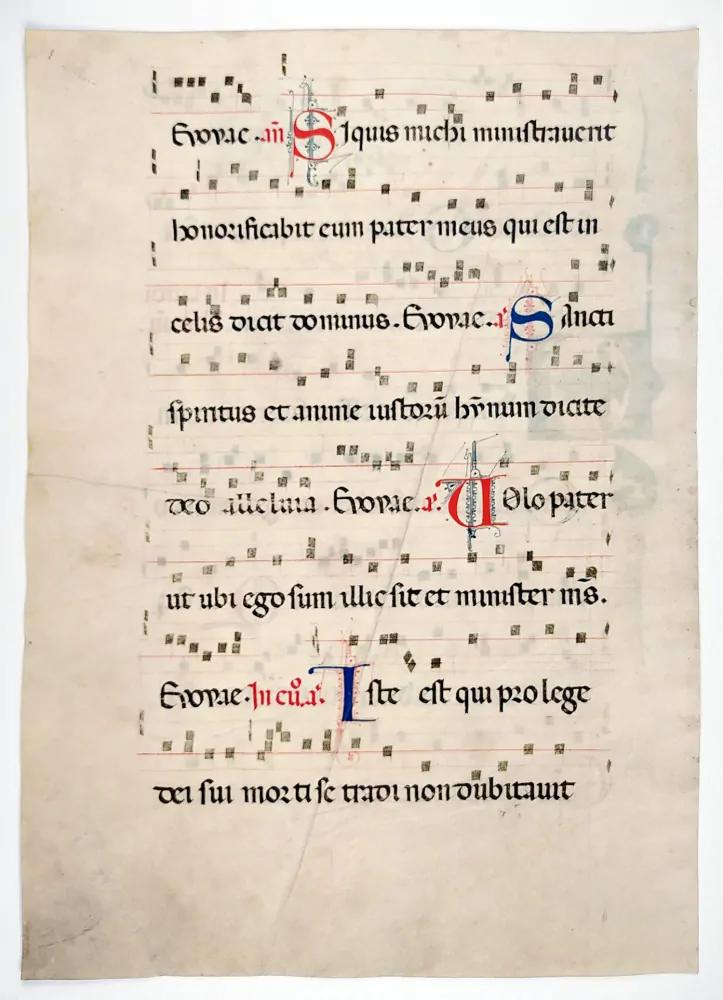 Evovae. an̄ Siquis michi ministraverit
honorificabit eum pater meus qui est in
celis dicit dominus. Evovae. a͛ Sancti
spiritus et anime iustorū hȳnum dicite
deo alleluia. Evovae. a͛. Uolo pater
ut ubi ego sum illic sit et minister m̄s.
Evovae. In eū. a͛. Iste est qui pro lege
dei sui morti se tradi non dubitauit